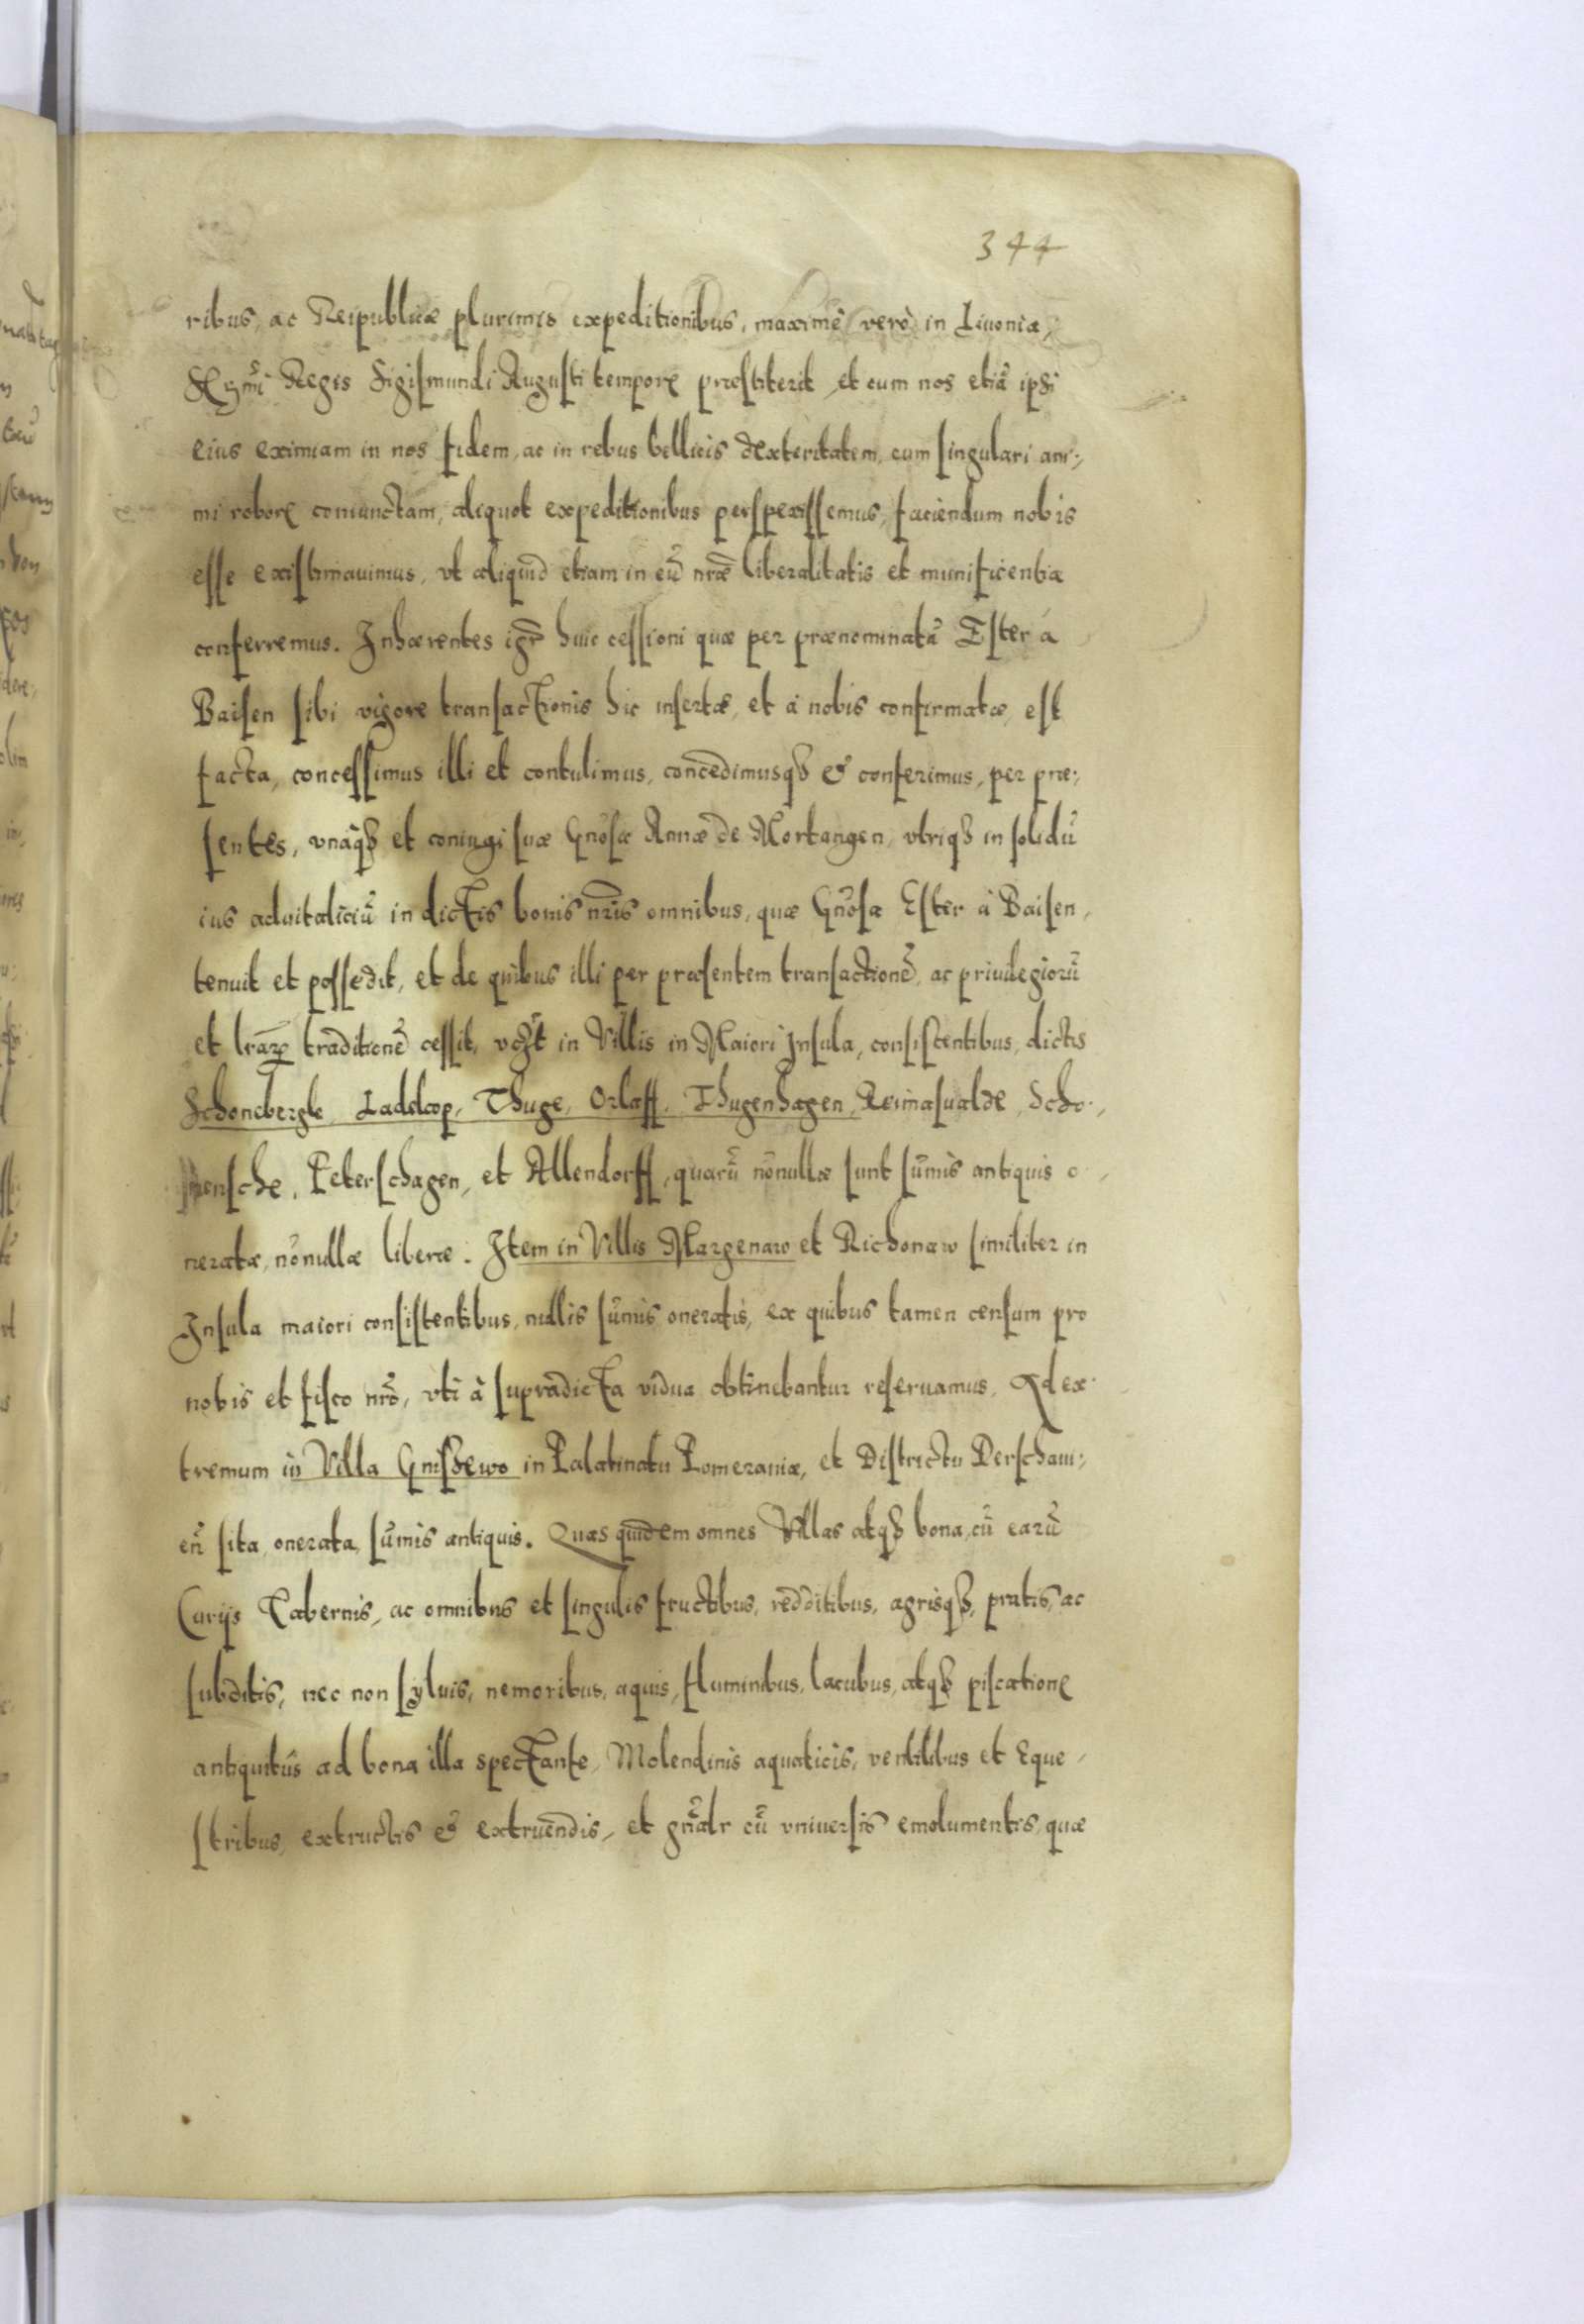 344
ribus, ac Reipublicæ plurimis expeditionibus, maximè verò in Liuonia,
Sermi Regis Sigismundi Augusti tempore præstiterit, et cum nos etiã ipsi
eius eximiam in nos fidem, ac in rebus bellicis dexteritatem, cum singulari ani:,
mi robore coniunctam, aliquot expeditionibus perspexissemus, faciendum nobis
esse existimauimus, vt aliquid etiam in eũ nræ liberalitatis et munificentiæ
conferremus. Inhærentes igr huic cessioni quæ per prænominatã Ester à
Baisen sibi vigore transactionis hic insertæ, et à nobis confirmatæ, est
facta, concessimus illi et contulimus, concedimusqȝ & conferimus, per præ:,
sentes, vnàqȝ et coniugi suæ Gñosæ Annæ de Mortangen, vtriqȝ in solidũ
ius aduitaliciũ in dictis bonis nr̃is omnibus, quæ Gñosa Ester à Baisen,
tenuit et possedit, et de quibus illi per præsentem transactionẽ, ac priuilegiorũ
et lrarꝝ traditionẽ cessit, vczt in Villis in Maiori Insula, consistentibus, dictis
Schonebergk, Ladekop, Thuge, Orlaff, Thugenhagen, Reimasualde, Scho:,
nensche, Peterschagen, et Allendorff, quarũ nõnullæ sunt sũmis antiquis o,
neratæ, nõnullæ liberæ. Item in Villis Margenaw et Richonaw similiter in
Insula maiori consistentibus, nullis sũmis oneratis, ex quibus tamen censum pro
nobis et fisco nrõ, vti à supradicta vidua obtinebantur reseruamus. Ad ex:
tremum in Villa Gnishewo in Palatinatu Pomeraniæ, et Districtu Derschaui:,
eñ sita, onerata, sũmis antiquis. Quas quidem omnes Villas atqȝ bona, cũ earũ
Curijs Tabernis, ac omnibus et singulis fructibus, redditibus, agrisqȝ, pratis, ac
subditis, nec non syluis, nemoribus, aquis, fluminibus, lacubus, atqȝ piscatione
antiquitùs ad bona illa spectante, Molendinis aquaticis, ventilibus et Eque,
stribus, extructis & extruendis, et gñalr cũ vniuersis emolumentis, quæ